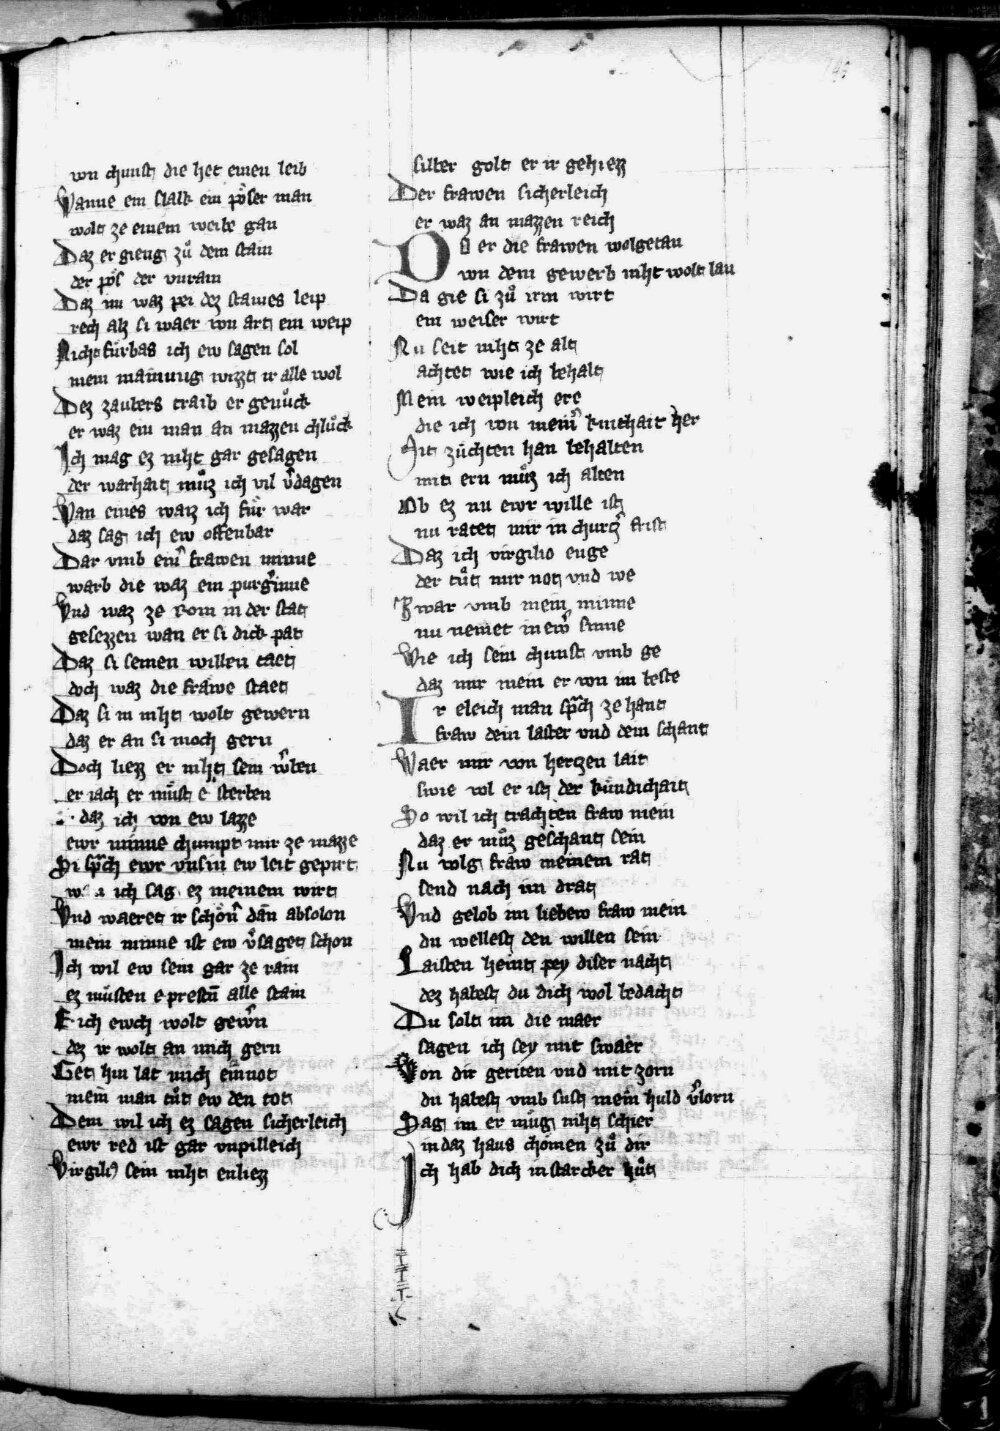 von chunst die het einen leib
Wanne ein slalk ein pöser man
wolt ze einem weibe gan
Daz er gieng zů dem stain
der pös der vnrain
Daz nu waz pei dez staines leip
rech alz si waer von art ein weip
Nicht fürbas ich ew sagen sol
mein mainung wizzt ir alle wol
Dez zaubers traib er genůck
er waz ein man an mazzen chlůck
Ich mag ez niht gar gesagen
der warhait můz ich vil v̓dagen
Wan eines waiz ich für war
daz sag ich ew offenbar
Dar vmb ein̓ frawen minne
warb die waz ein purg̓inne
Vnd waz ze Rom in der stat
gesezzen wan er si dick pat
Daz si seinen willen taet
doch waz die frawe staet
Daz si in niht wolt gewern
daz er an si moch gern
Doch liezz er niht sein w̓ben
er iach er müst e sterben
daz ich von ew lazze
ewr minne chumpt mir ze mazze
Si sp̄ch ewr vnsin ew leit gepirt
ich sag ez meinem wirt
Vnd waeret ir schön̓ dan̄ absolon
mein minne ist ew v̓saget schon
Ich wil ew sein gar ze rain
ez müsten e presten̄ alle stain
E ich ewch wolt gew̓n
dez ir wolt an mich gern
Get hin lat mich ein̄not
mein man tůt ew den tot
Dem wil ich ez sagen sicherleich
ewr red ist gar vnpilleich
Virgili⁹ sein niht enliezz
silber golt er ir gehiezz
Der frawen sicherleich
er waz an mazzen reich
Do er die frawen wolgetan
von dem gewerb niht wolt lan
Da gie si zů irm wirt
ein weiser wirt
Nu seit niht ze alt
achtet wie ich behalt
Mein weipleich ere
die ich von mein̓ kinthait her
Mit züchten han behalten
mit ern můz ich alten
Ob ez nu ewr wille ist
nu ratet mir in churcz̓ frist
Daz ich virgilio enge
der tůt mir not vnd we
Zwar vmb mein minne
nu nemet in ew̓ sinne
Wie ich sein chunst vmb ge
daz mir mein er von im beste
Ir eleich man sp̄ch ze hant
fraw dein laster vnd dein schant
Waer mir von herczen lait
swie vol er ist der kündichait
So wil ich trachten fraw mein
daz er můz geschant sein
Nu volg fraw meinem rat
send nach im drat
Vnd gelob im liebew fraw mein
du wellest den willen sein
Laisten heint pey diser nacht
dez habest du dich wol bedacht
Du solt im die maer
sagen ich sey mit swaer
Von dir geriten vnd mit zorn
du habest vmb sust mein̄ huld v̓lorn
Sag im er müg niht schier
in daz haus chomen zů dir
Ich hab dich in starcker hůt